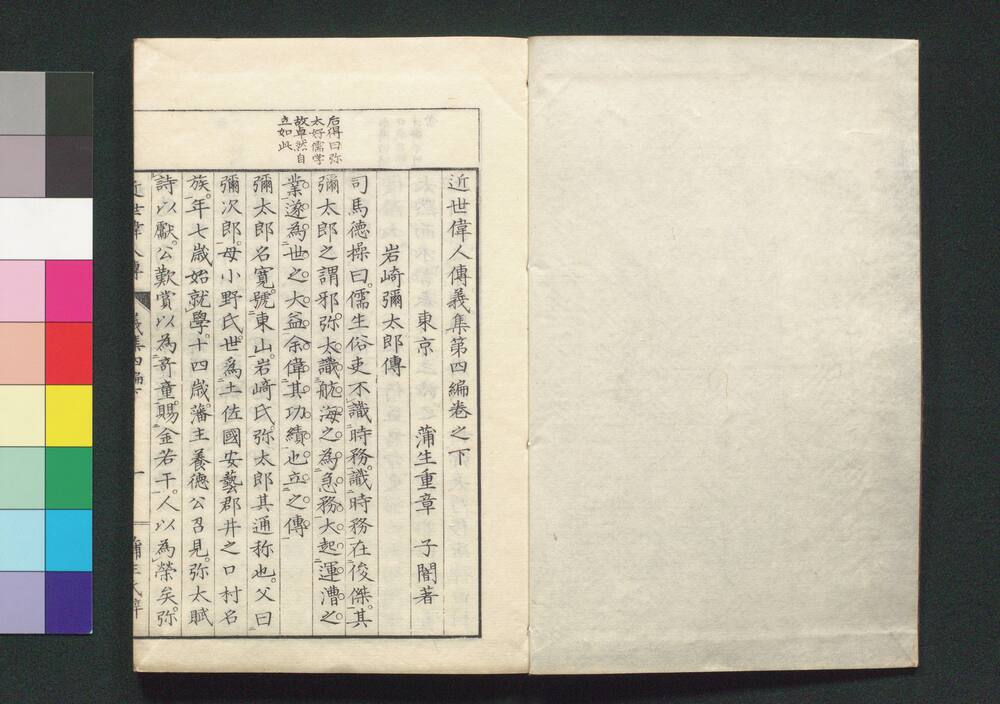 近世偉人傳義集第四編卷之下
東京 蒲生重章 子闇著
岩崎彌太郎傳
司馬德操曰。儒生俗吏不識時務。識時務在俊傑。其
彌太郎之謂邪。弥太識航海之為急務。大起運漕之
業。遂為世之大益。余偉其功績也。立之傳
彌太郎名寬。號東山。岩崎氏。弥太郎其通称也。父曰
彌次郎。母小野氏。世爲土佐國安藝郡井之口村名
族。年七歳始就學。十四歳藩主養德公召見。弥太賦
詩以獻。公歎賞以為奇童。賜金若干。人以為榮矣。弥
后得曰弥
太好儒学
故卓然自
立如此
近世偉人傳 義集四編下 一